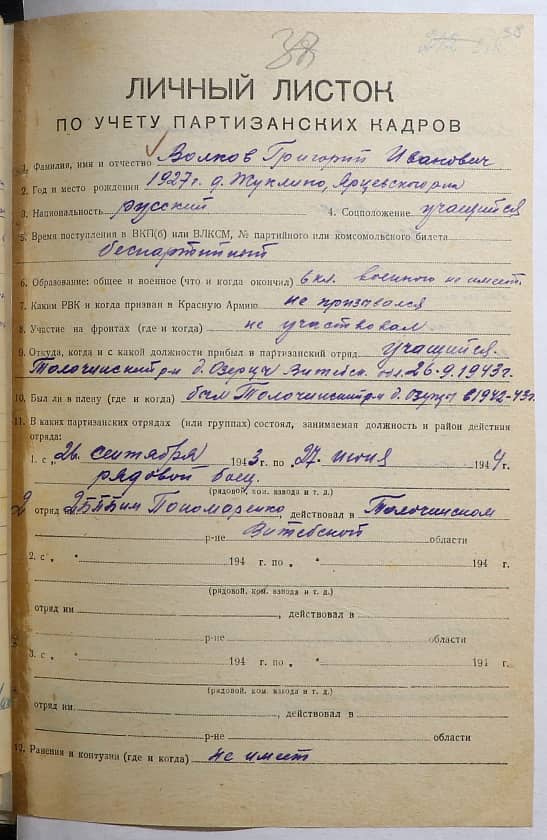 38
38
ЛИЧНЫЙ ЛИСТОК
ПО УЧЕТУ ПАРТИЗАНСКИХ КАДРОВ
1. Фамилия, имя и отчество Волков Григорий Иванович
2. Год и место рождения 1927 г. д. Жуклино, Ярцевского р-на
3. Национальность русский 4. Соцположение учащийся
5. Время поступления в ВКП(б) или ВЛКСМ, № партийного или комсомольского билета
беспартийный
6. Образование: общее и военное (что и когда окончил) 6 кл. военного не имеет
7. Каким РВК и когда призван в Красную Армию не призывался
8. Участие на фронтах (где и когда) не участвовал
9. Откуда, когда и с какой должности прибыл в партизанский отряд учащийся.
Толочинский р-н д. Озерцы Витебск. обл. 26.9.1943г.
10. Был ли в плену (где и когда) был Толочинский р-н д. в 1942-43г.
11. В каких партизанских отрядах (или группах) состоял, занимаемая должность и район действия
отряда:
1. с „26 сентября 1943 г. по „27 июня 1944 г.
рядовой боец
(рядовой, ком. взвода и т. д.)
2 отряд 2 им Пономаренко действовал в Толочинском
р-не Витебской области
2. с „ " 194 г. по „ " 194 г.
(рядовой, ком. взвода и т. д.)
отряд им , действовал в
р-не области
3. с „ " 194 г. по „ " 194 г.
(рядовой, ком. взвода и т. д.)
отряд им , действовал в
р-не области
12. Ранения и контузии (где и когда) не имеет